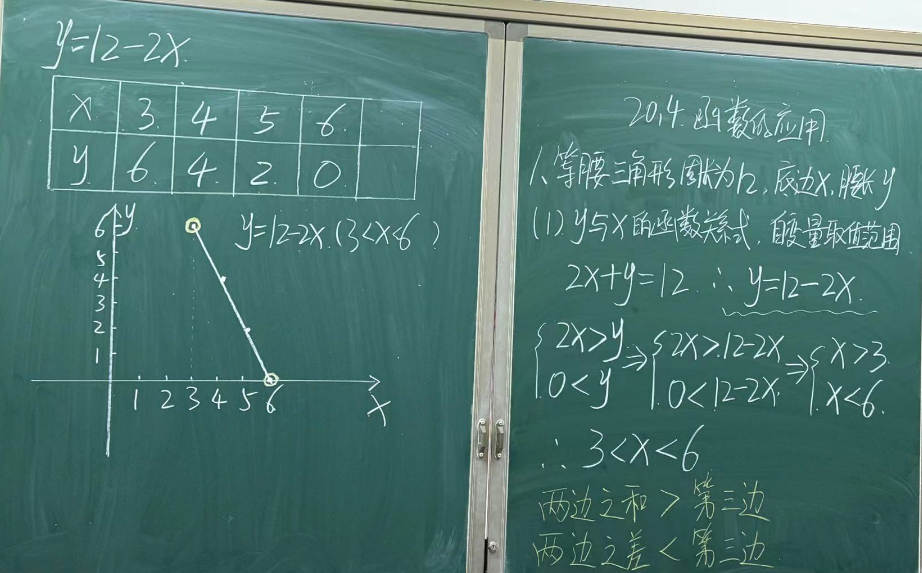 y=12-2x.
x 3. 4 5 6.
y 6. 4. 2. 0.
y=12-2x.(3<x<6)
y
6
5
4
3
2
1
1 2 3 4 5 6
x
20.4.函数的应用.
1、等腰三角形周长为12,底边x,腰长y
(1)y与x的函数关系式,自变量取值范围
2x+y=12 ∴y=12-2x.
{2x>y ⇒ {2x>12-2x ⇒ {x>3.
0<y 0<12-2x. x<6.
∴3<x<6
两边之和>第三边
两边之差<第三边.